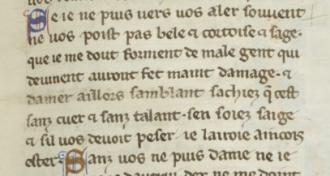 Se ie ne puis uers uos aler souuent
ne uos poist pas bele & cortoise & sage.
que ie me dout forment de male gent qui
deuinent auront fet maint damage. &
damer aillors samblant sachiez q̃ cest
sanz cuer & sanz talant. sen soiez saige
& sil uos deuoit peser ie lairoie aincois
ester. Sanz uos ne puis dame ne ie